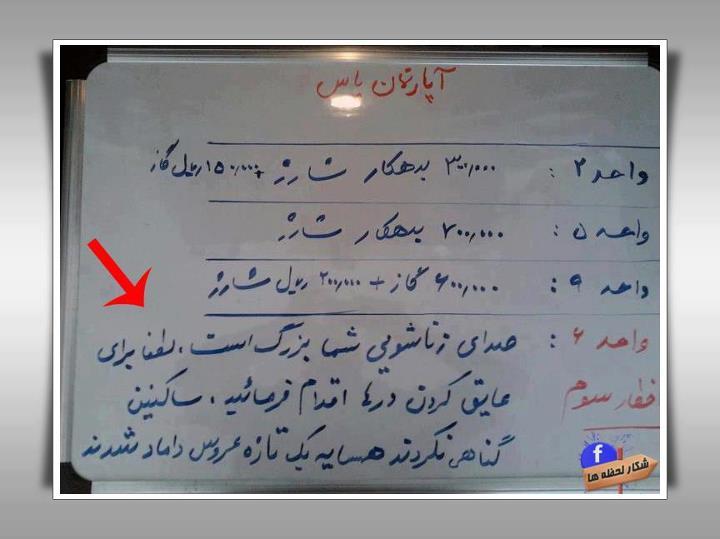 آپارتمان یاس
واحد ۲ : ۳۰۰٫۰۰۰ بدهکار شارژ + ۱۵۰٫۰۰۰ ریال گاز
واحد ۵ : ۷۰۰٫۰۰۰ بدهکار شارژ
واحد ۹ : ۶۰۰٫۰۰۰ گاز + ۲۰۰٫۰۰۰ ریال شارژ
واحد ۶ : صدای زناشویی شما بزرگ است ، لطفا برای
اخطار سوم عایق کردن درها اقدام فرمائید ، ساکنین
گناهی نکردند همسایه یک تازه عروس داماد شدند
f
شکار لحظه ها